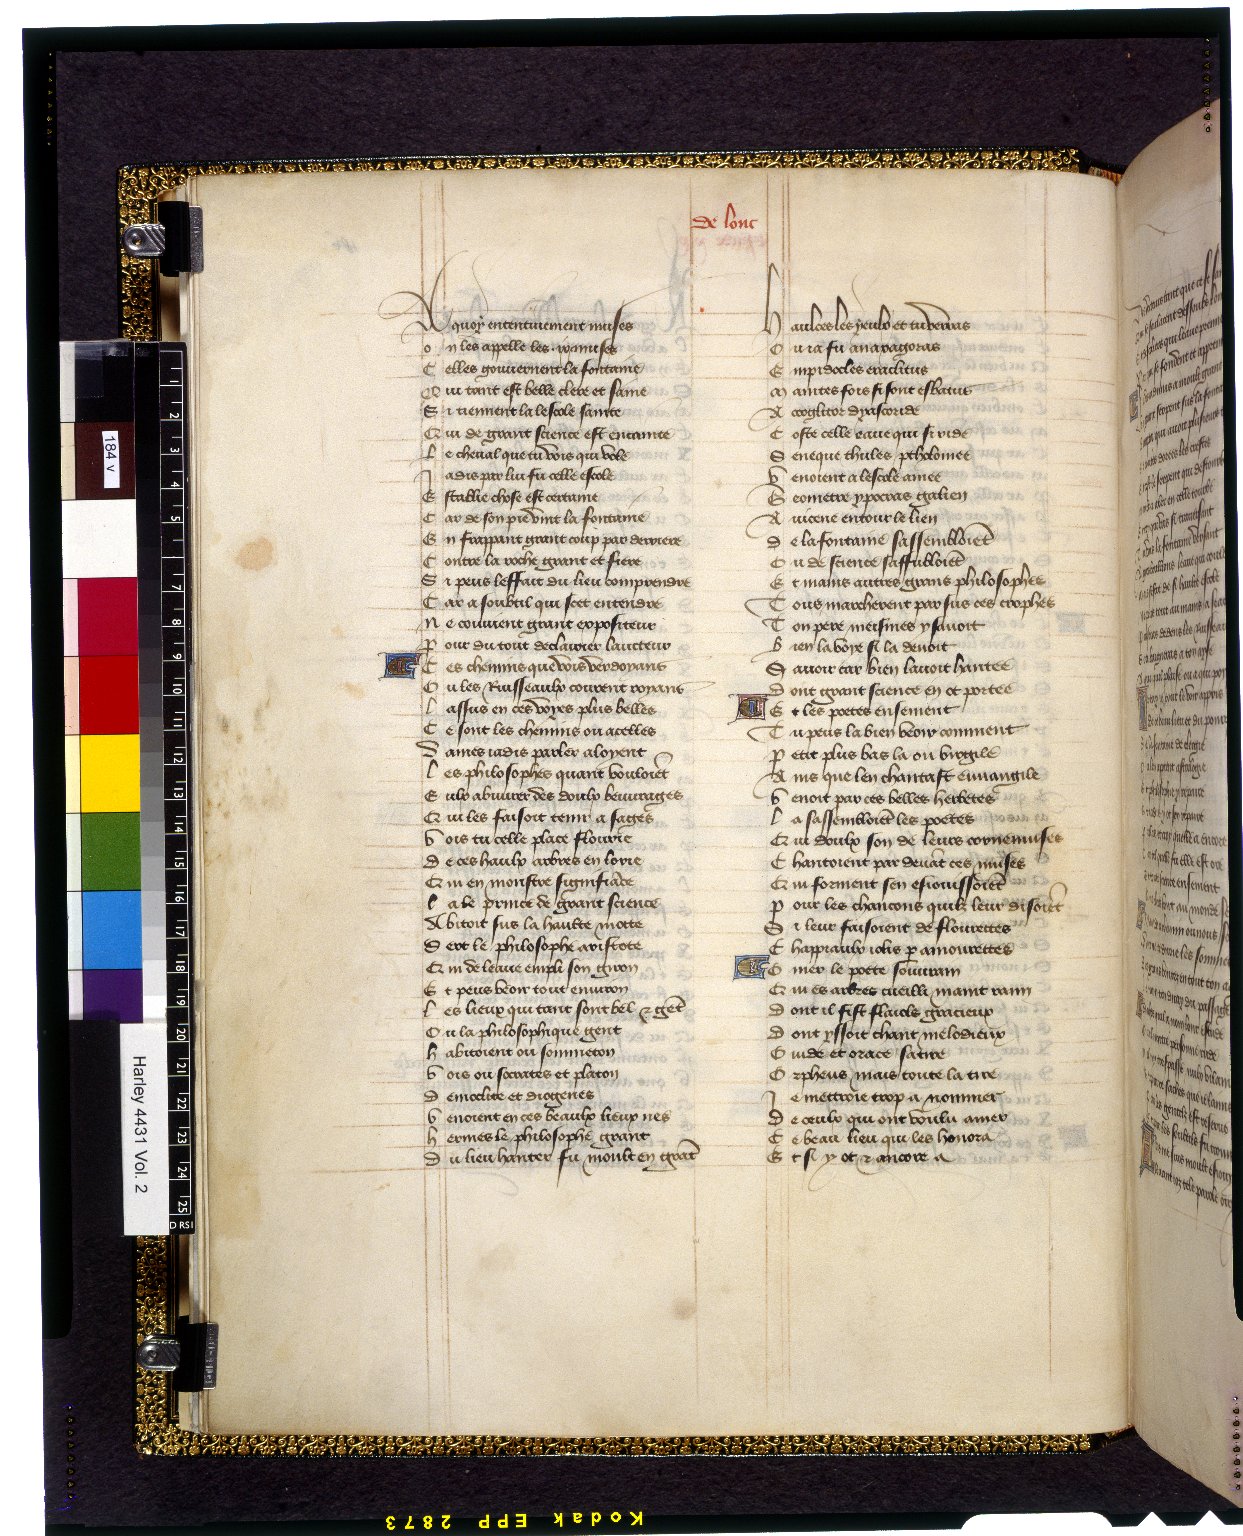 de lonc
A quoy ententiuement muses
On les appelle les ix muses
Celles gouuernent la fontaine
Qui tant est belle clere et saine
Si tiennent la lescole sainte
Qui de grant science est encainte
Le cheual que tu vois qui vole
Jadis par lui fu celle escole
Establie chose est certaine
Car de son pie vint la fontaine
En frappant grant coup par derriere
Contre la roche grant et fiere
Si peus leffait du lieu comprendre
Car a soubtil qui scet entendre
Ne couuient grant expositeur
Pour du tout declairier laucteur
Ces chemins que vois verdoyans
Ou les Ruisseaulx courent royans
Lassus en ces voyes plus belles
Ce sont les chemins ou ycelles
Dames iadis parler aloyent
Les philosophes quant vouloiēt
Eulx abuurer des doulx beuurages
Qui les faisoit tenir a sages
Vois tu celle place flourie
De ces haulx arbres en lorie
Qui en monstre signifiāce
La le prince de grant science
Abitoit sus la haulte motte
Dert le philosophe aristote
Qui de leaue empli son giron
Et peus veoir tout enuiron
Les lieux qui tant sont bel ⁊ gēt
Ou la philosophique gent
Habitoient ou sommeton
Vois ou socrates et platon
Democlite et diogenes
Venoient en ces beaulx lieux nes
Hermes le philosophe grant
Du lieu hanter fu moult en grāt
Haulces les yeulx et tu verras
Ou ia fu anaxagoras
Empidocles eraclitus
Maintes fois si sont esbatus
A dyascoride
Coste celle eaue qui si ride
Seneque thules ptholomee
Venoient a lescole amee
Geometre ypocras galien
Auicene entour le lien
De la fontaine sassembloiēt
Ou de science saffubloiēt
Et mains autres grans philosophes
Tous marcherent par sus ces trophes
Ton pere meismes y sauoit
Bien la voye si la deuoit
Sauoir car bien lauoit hantee
Dont grant science en ot portee
Et les poetes ensement
Tu peus la bien veoir comment
Petit plus bas la ou virgile
Ains que len chantast euuangile
Venoit par ces belles herbetes
La sassembloiēt les poetes
Qui doulx son de leurs cornemuses
Chantoient par deuāt ces muses
Qui forment sen esiouissoiēt
Pour les chancons quilz leur disoiēt
Si leur faisoient de flourettes
Chappiaulx iolis p amourettes
Omer le poete souurain
Qui es arbres cueilli maint raim
Dont il fist flaiols gracieux
Dont yssoit chant melodieux
Ouide et orace satire
Orpheus mais toute la tire
Je mettroie trop a nommer
De ceulx qui ont voulu amer
Ce beau lieu qui les honora
Et si y ot ⁊ ancore a
184 v
Harley 4431 Vol. 2
Kodak EPP 2873